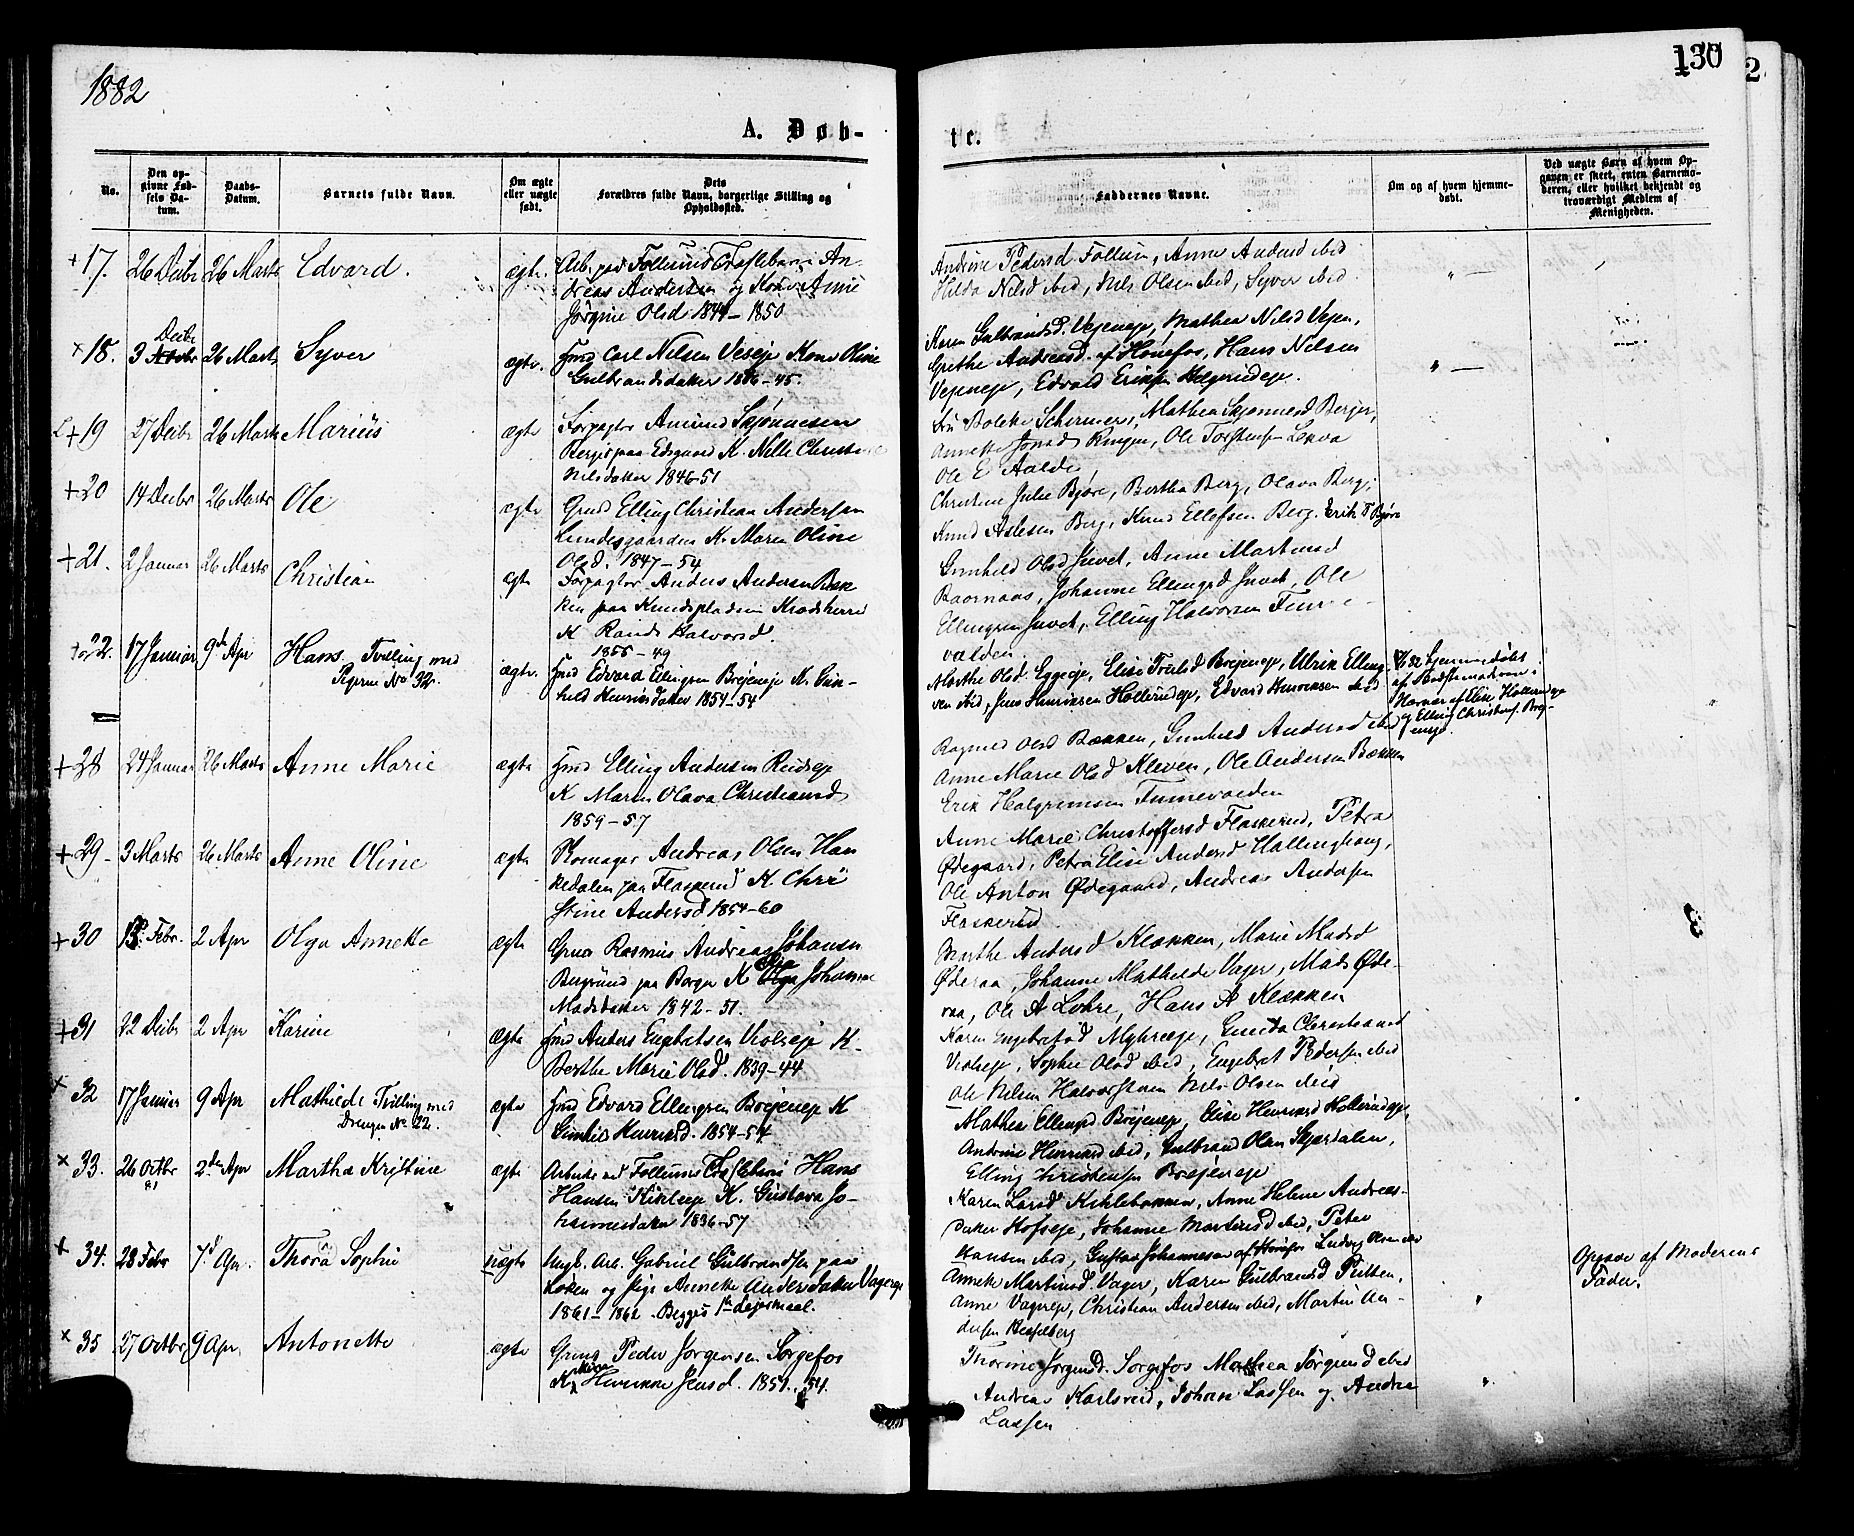 1882
130
2
A. Døb-
te.
No.
Den op-
givne Fød-
sels Da-
tum.
Daabs-
Datum.
Barnets fulde Navn.
Om ægte
eller uægte
født.
Dets
Forældres fulde Navn, borgerlige Stilling og
Opholdssted.
Faddernes Navne.
Om og af hvem hjemme-
døbt.
Ved uægte Barn af hvem Op-
gaven er skeet, enten Barnemo-
deren, eller hvilket bekjendt og
troværdigt Medlem af
Menigheden.
+17. 26 Decbr 26 Marts Edvard. ægte. Arb. ved Follum Træsliberi An-
dreas Andersen og Kone Anne
Jørgine Olsd 1849-1850
Andrine Pedersd Follum, Anne Andersd ibid
Hilda Nilsd ibid, Nils Olsen ibid, Syver ibid
+18. 3 Decbr 26 Marts Syver ægte. Hmd Carl Nilsen Veseje Kone Oline
Gulbrandsdatter 1846-45.
Karen Gulbrandsd. Vejeneje, Mathea Nilsd Vejen,
Grethe Andreasd. af Hønefos, Hans Nilsen
Vejeneje, Edvard Eriksen Helgerudeje.
+19 27 Decbr 26 Marts Marius ægte Forpagter Amund Skjønnesen
Berger paa Edsgaard K. Nille Christine
Nilsdatter 1846-51
Mathea Skjønnesd Berger,
Annette Jonsd Ringen, Ole Torstensen Lekva
Ole E Aalde,
+20 14 Decbr 26 Marts Ole ægte Grmd Elling Christian Andersen
Lundesgaarden K. Maren Oline
Olsd. 1847-54
Christine Julie Bjøre, Bertha Berg, Olava Berg,
Knud Aslesen Berg, Knud Ellefsen Berg. Erik T Bjøre
+21. 2 Januar 26 Marts Christian ægte Forpagter Anders Andersen Bak
ken paa Knudspladsen Krødsherre
K Randi Halvorsd.
1855-49
Gunhild Olsd Juvet, Anne Martinsd
Baarnaas, Johanne Ellingsd Juvet, Ole
Ellingsen Juvet, Elling Halvorsen Finne-
valden.
22. 17 Januar 9de Apr Hans Tvilling med
Pigen No 32. ægte. Hmd Edvard Ellingsen Brejeneje K. Gun-
hild Henriksdatter 1854-54
Marthe Olsd Eggeeje, Elise Trulsd Brejeneje, Ulrik Elling
sen ibid, Jens Henriksen Hollerudeje, Edvard Henriksen ibid
No 32 hjemmedøbt
af
af Elise Hollerudeje
og Elling Christens. Brej-
eneje.
+28 24 Januar 26 Marts Anne Marie ægte Hmd Elling Andersen Reidseje
K Maren Olava Christiansd
1859-57
Ragnild Olsd Bækken, Gunhild Andersd ibid
Anne Marie Olsd Kleven, Ole Andersen Bækken
Erik Halgrimsen Finnevolden
+29- 3 Marts 26 Marts Anne Oline ægte Skomager Andreas Olsen Han
sedalen paa Flaskerud K Chri
stine Andersd 1854-60
Anne Marie Christoffersd Flaskerud, Petra
Ødegaard, Petra Elise Andersd Hallinghaug,
Ole Anton Ødegaard, Andreas Andersen
Flaskerud.
+30 13. Febr. 2 Apr Olga Annette ægte Grmd Rasmus Andreas Johansen
Bergsund paa Borger K Olga Johanne
Madsdatter 1842-51.
Marthe Andersd Klækken, Marie Madsd
Øderaa, Johanne Mathilde Vager, Mads Øde-
raa, Ole A Lohre, Hans A Klækken
+31 22 Decbr 2 Apr Karine ægte Hmd Anders Engebretsen Violseje K.
Berthe Marie Olsd. 1839-44
Karen Engebretsd Myhreeje, Gunda Christiansd
Violseje, Sophie Olsd ibid, Engebret Pedersen ibid
Ole Nilsen Halvorstuen Nils Olsen ibid
x 32 17 Januar 9 Apr Mathilde Tvilling med
Drengen No 22. ægte Hmd Edvard Ellingsen Brejeneje K
Gunhild Henriksd. 1854-54
Mathea Ellingsd Brejeneje, Elise Henriksd Hollerudeje,
Antonie Henriksd ibid, Gulbrand Olsen Skjærdalen,
Elling Christensen Brejeneje
x 33. 26 Octbr
81 2den Apr Martha Kristine ægte Arbeider ved Follums Træsliberi Hans
Hansen Kihleeje K. Gustava Jo-
hannesdatter 1836-57
Karen Larsd Kihlebakken, Anne Helene Andreas-
datter Hofseje, Johanne Martinsd ibid, Peter
Hansen ibid, Gustav Johannesen af Hønefos Ludvig Olsen ibid
x 34. 28 Febr 7d Apr. Thora Sophie uægte Ungk. Arb. Gabriel Gulbrandsen paa
Loken og Pige Annette Andersdatter Vagereje
1861-1862. Begges 1ste Lejermaal.
Annette Martinsd. Vager, Karen Gulbrandsd Putten,
Anne Vagereje, Christian Andersen ibid, Martin An-
dersen Hesselberg
Opgave af Moderens
Fader.
x 35 27 Octbr 9 Apr. Antonette ægte Grmd Peder Jørgensen Sørgefos
K. Henrikke Jensd. 1851-54.
Thorine Jørgensd. Sørgefos Mathea Jørgensd ibid
Andreas Karlsrud, Johan Lassen og Andre
Lassen